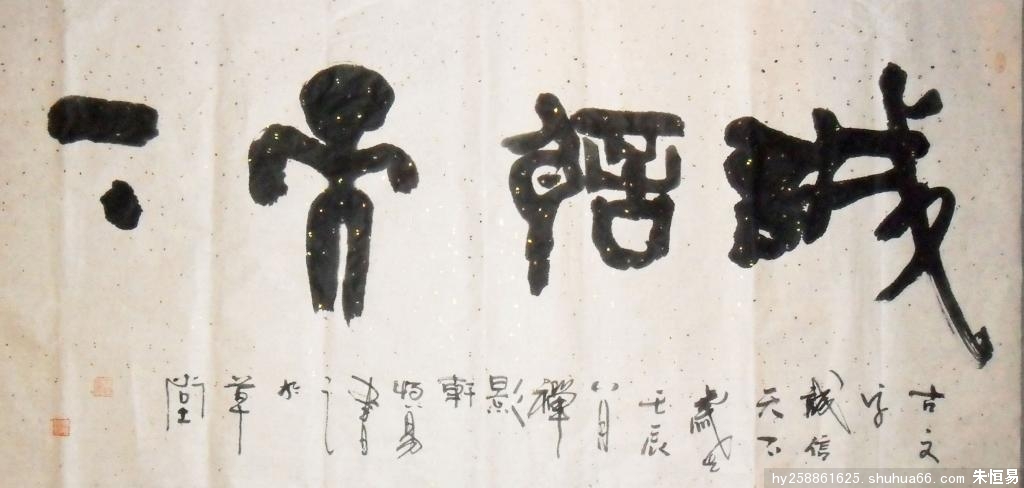 誠信天下
古文
字
誠信
天下
歲在
壬辰
八月
禪
影
軒
恒易
書
之
於
草
堂
hy258861625.shuhua66.com 朱恒易